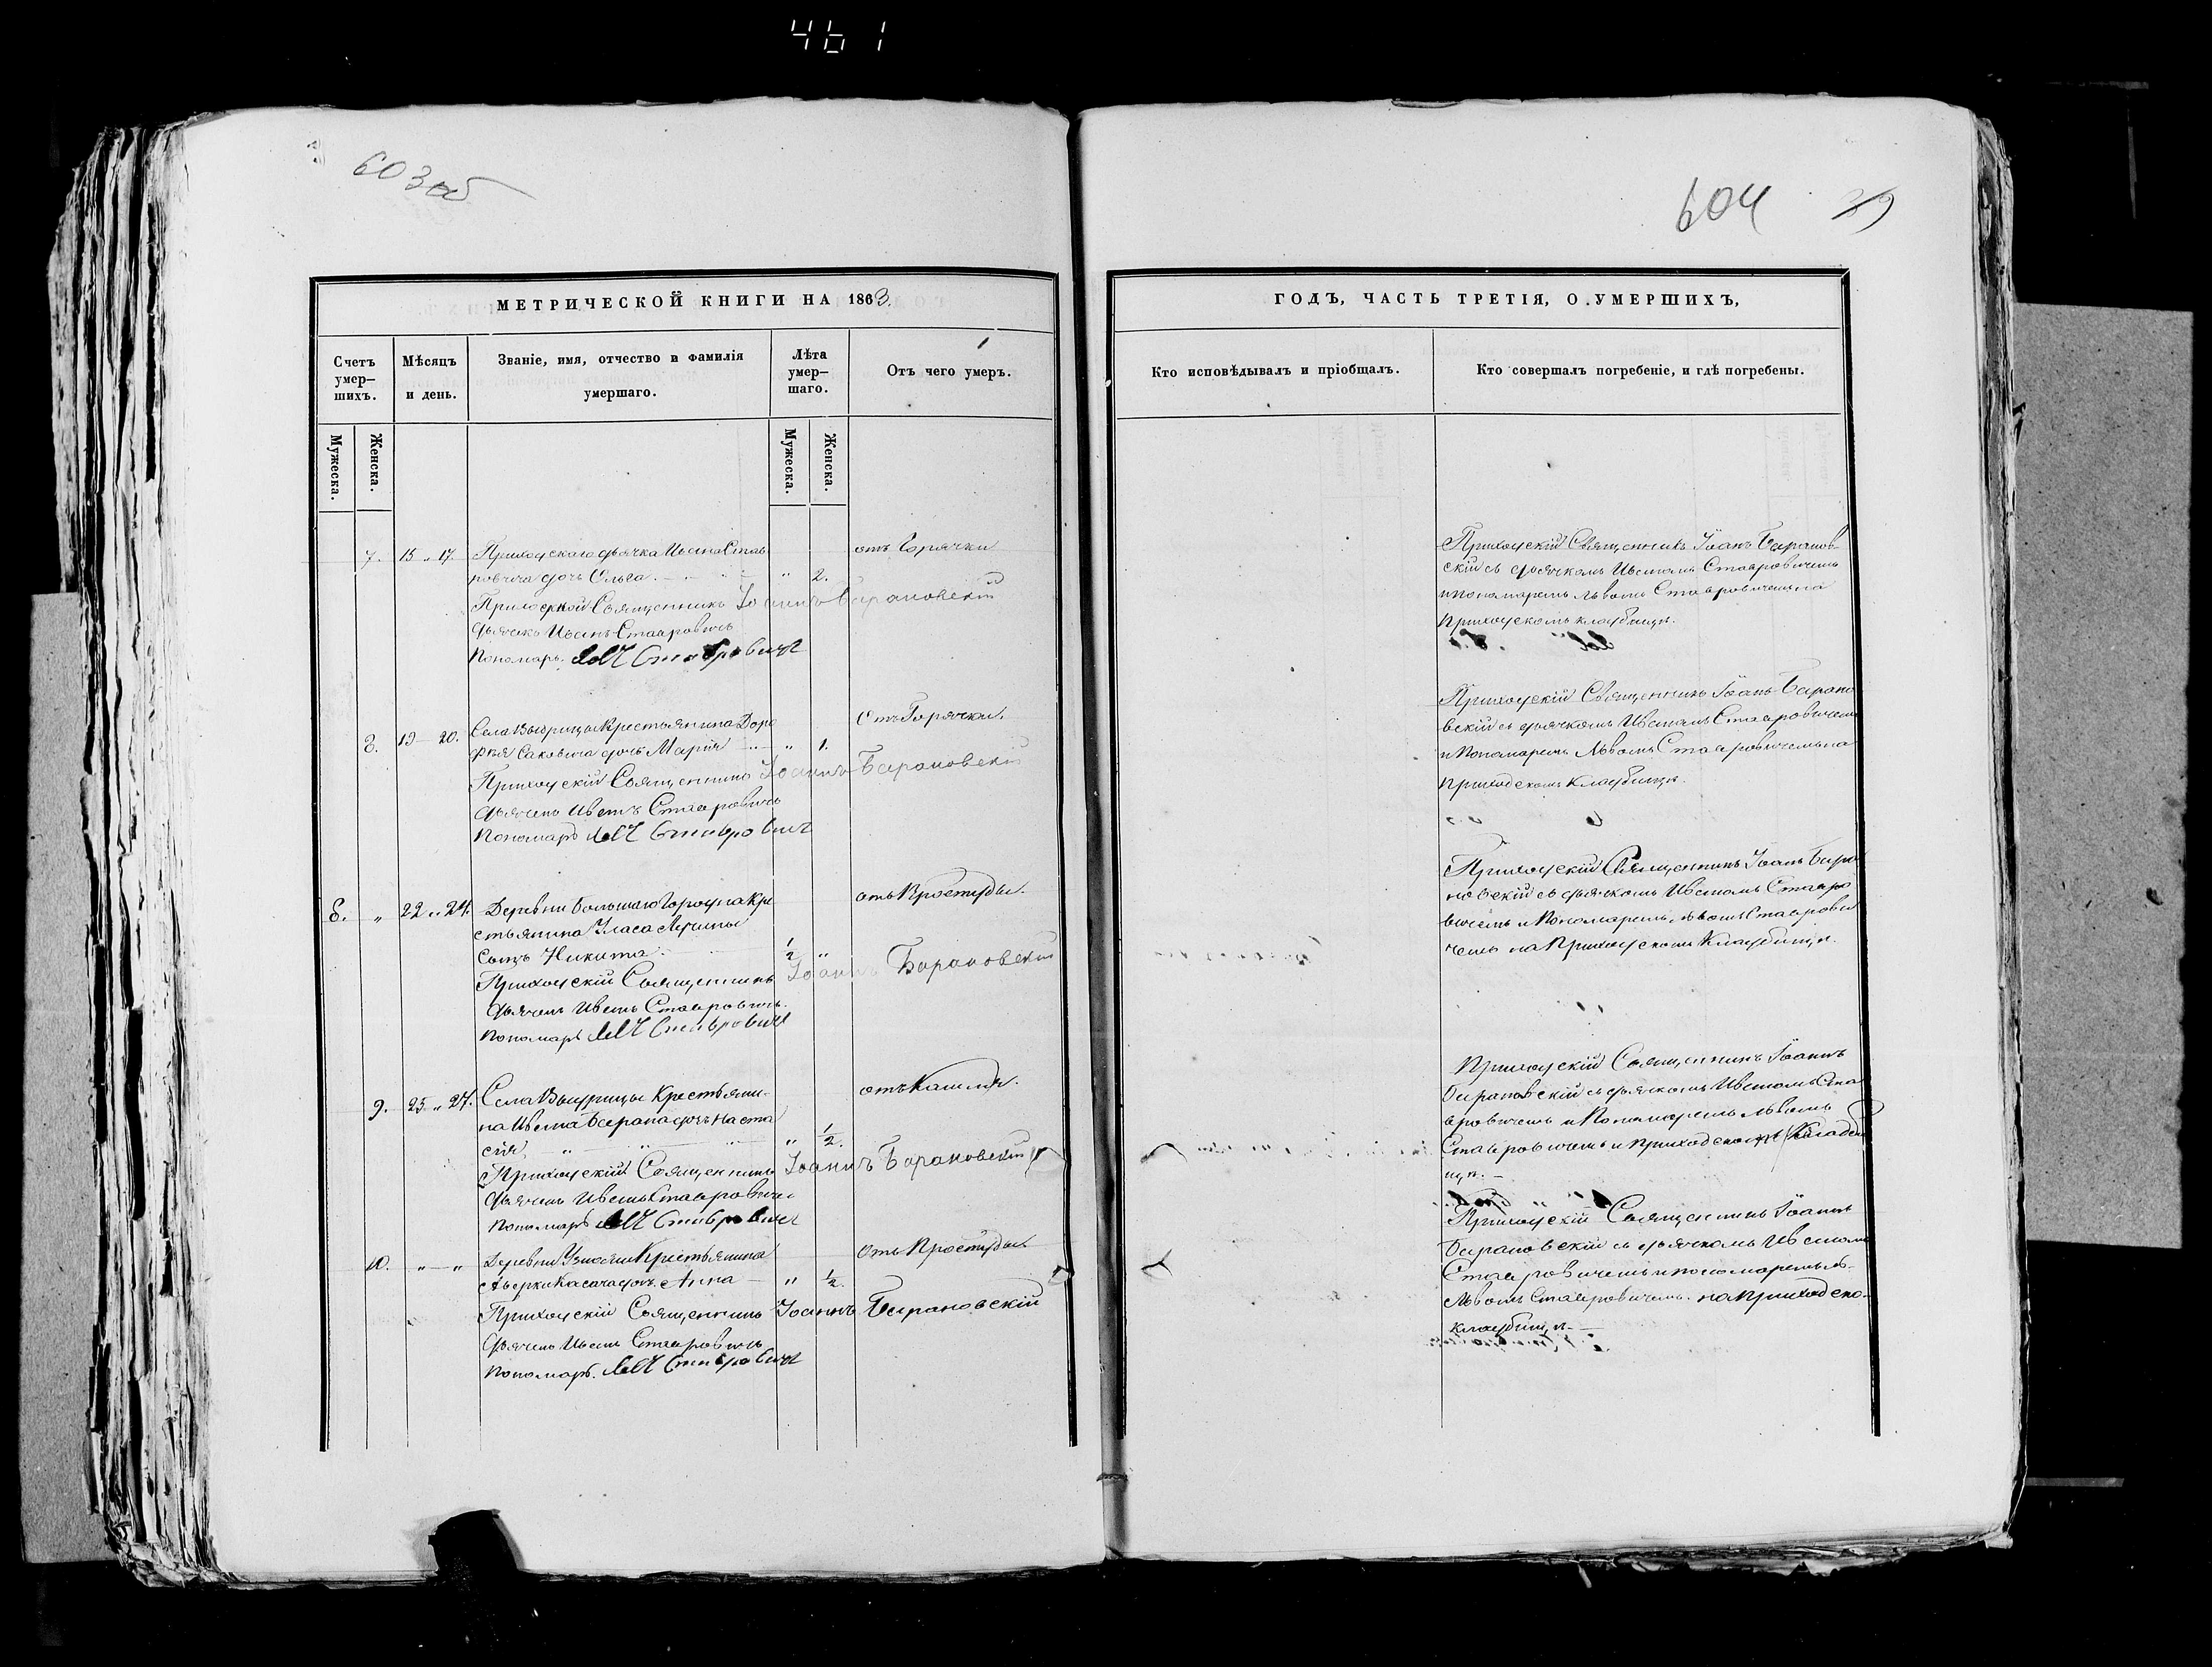 461
603 об
604
39
МЕТРИЧЕСКОЙ КНИГИ НА 1863.
Счетъ умер-
шихъ.
Мѣсяцъ
и день.
Званіе, имя, отчество и фамилія
умершаго.
Лѣта
умер-
шаго.
Отъ чего умеръ.
Мужеска.
Женска.
Мужеска.
Женска.
7. 15 " 17. Приходскаго дьячка Ивана Став отъ Горячки
ровича дочь Ольга. " 2.
Приходской Священникъ Іоаннъ Барановскій
Дьячекъ Иванъ Ставровичъ
Пономарь Левъ Ставровичъ
8. 19 — 20. Села Выдрицы Крестьянина Доро Отъ Горячки.
фея Саковича дочь Марія " 1.
Приходскій Священникъ Іоаннъ Барановскій
Дьячекъ Иванъ Ставровичъ
Пономарь Левъ Ставровичъ
6. " 22 " 24. Деревни Большаго Городна Кре отъ Простуды.
стьянина Уласа
Сынъ Никита 1/2 "
Приходскій Священникъ Іоаннъ Барановскій
Дьячекъ Иванъ Ставровичъ.
Пономарь Левъ Ставровичъ
9. 25 " 27. Села Выдрицы Крестьяни- отъ Кашля.
на Ивана Барана дочь Наста
сія " " " 1/2.
Приходскій Священникъ Іоаннъ Барановскій
Дьячекъ Иванъ Ставровичъ
Пономарь Левъ Ставровичъ
10. " — " Деревни Крестьянина Отъ Простуды
Аверки Касача дочь Анна — " 1/2.
Приходскій Священникъ Іоаннъ Барановскій
Дьячекъ Иванъ Ставровичъ
Пономарь. Левъ Ставровичъ
ГОДЪ, ЧАСТЬ ТРЕТІЯ, О УМЕРШИХЪ,
Кто исповѣдывалъ и пріобщалъ.
Кто совершалъ погребеніе, и гдѣ погребены.
Приходскій Священникъ Іоанъ Баранов-
скій съ дьячкомъ Иваномъ Ставровичемъ
и пономаремъ Львомъ Ставровичемъ на
приходскомъ кладбищѣ.
Приходскій Священникъ Іоанъ Барано
вскій съ дьячкомъ Иваномъ Ставровичемъ
и Пономаремъ Львомъ Ставровичемъ на
приходскомъ Кладбищѣ.
Приходскій Священникъ Іоанъ Бара
новскій съ дьячкомъ Иваномъ Ставро
вичемъ и Пономаремъ Львомъ Ставрови
чемъ на Приходскомъ Кладбищѣ.
Приходскій Священникъ Іоаннъ
Барановскій съ дьячкомъ Иваномъ Ста
вровичемъ и Пономаремъ Львомъ
Ставровичемъ и приходскомъ Кладби
щѣ. —
Приходскій Священникъ Іоаннъ
Барановскій съ дьячкомъ Иваномъ
Ставровичемъ и пономаремъ
Львомъ Ставровичемъ на приходско-
кладбищѣ. —